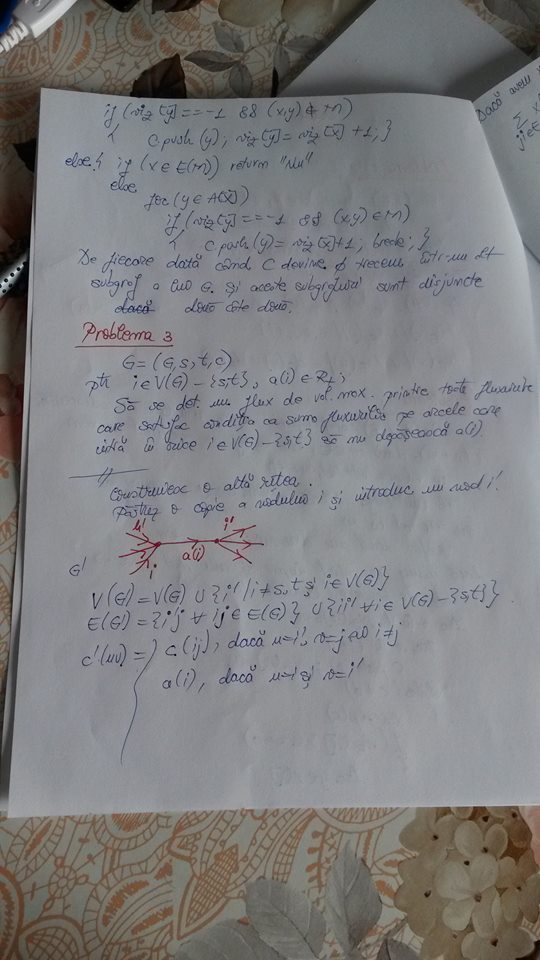 if (viz[y]==-1 && (x,y) ∉ M)
{ C.push(y); viz[y]=viz[x]+1;}
else{ if (x∈E(M)) return "Nu"
else
for(y∈A[x])
if(viz[y]==-1 && (x,y)∈M)
{ C.push(y)=viz[x]+1; break;}
De fiecare dată când C devine ∅ trecem într-un alt
subgraf a lui G. și aceste subgrafuri sunt disjuncte
dacă două câte două.
Problema 3
G=(G,s,t,c)
ptr i∈V(G)-{s,t}, a(i)∈R+;
Să se det. un flux de val. max. printre toate fluxurile
care satisfac condiția ca suma fluxurilor pe arcele care
intră în orice i∈V(G)-{s,t} să nu depășească a(i).
Construiesc o altă rețea.
Păstrez o copie a nodului i și introduc un nod i'.
i'
a(i)
i
G'
V(G')=V(G) ∪ {i' | i≠s,t și i∈V(G)}
E(G')={i'j ∀ ij∈E(G)} ∪ {ii' ∀ i∈V(G)-{s,t}}
c'(uv)={ c(ij), dacă u=i', v=j i≠j
a(i), dacă u=i și v=i'
Dacă avem